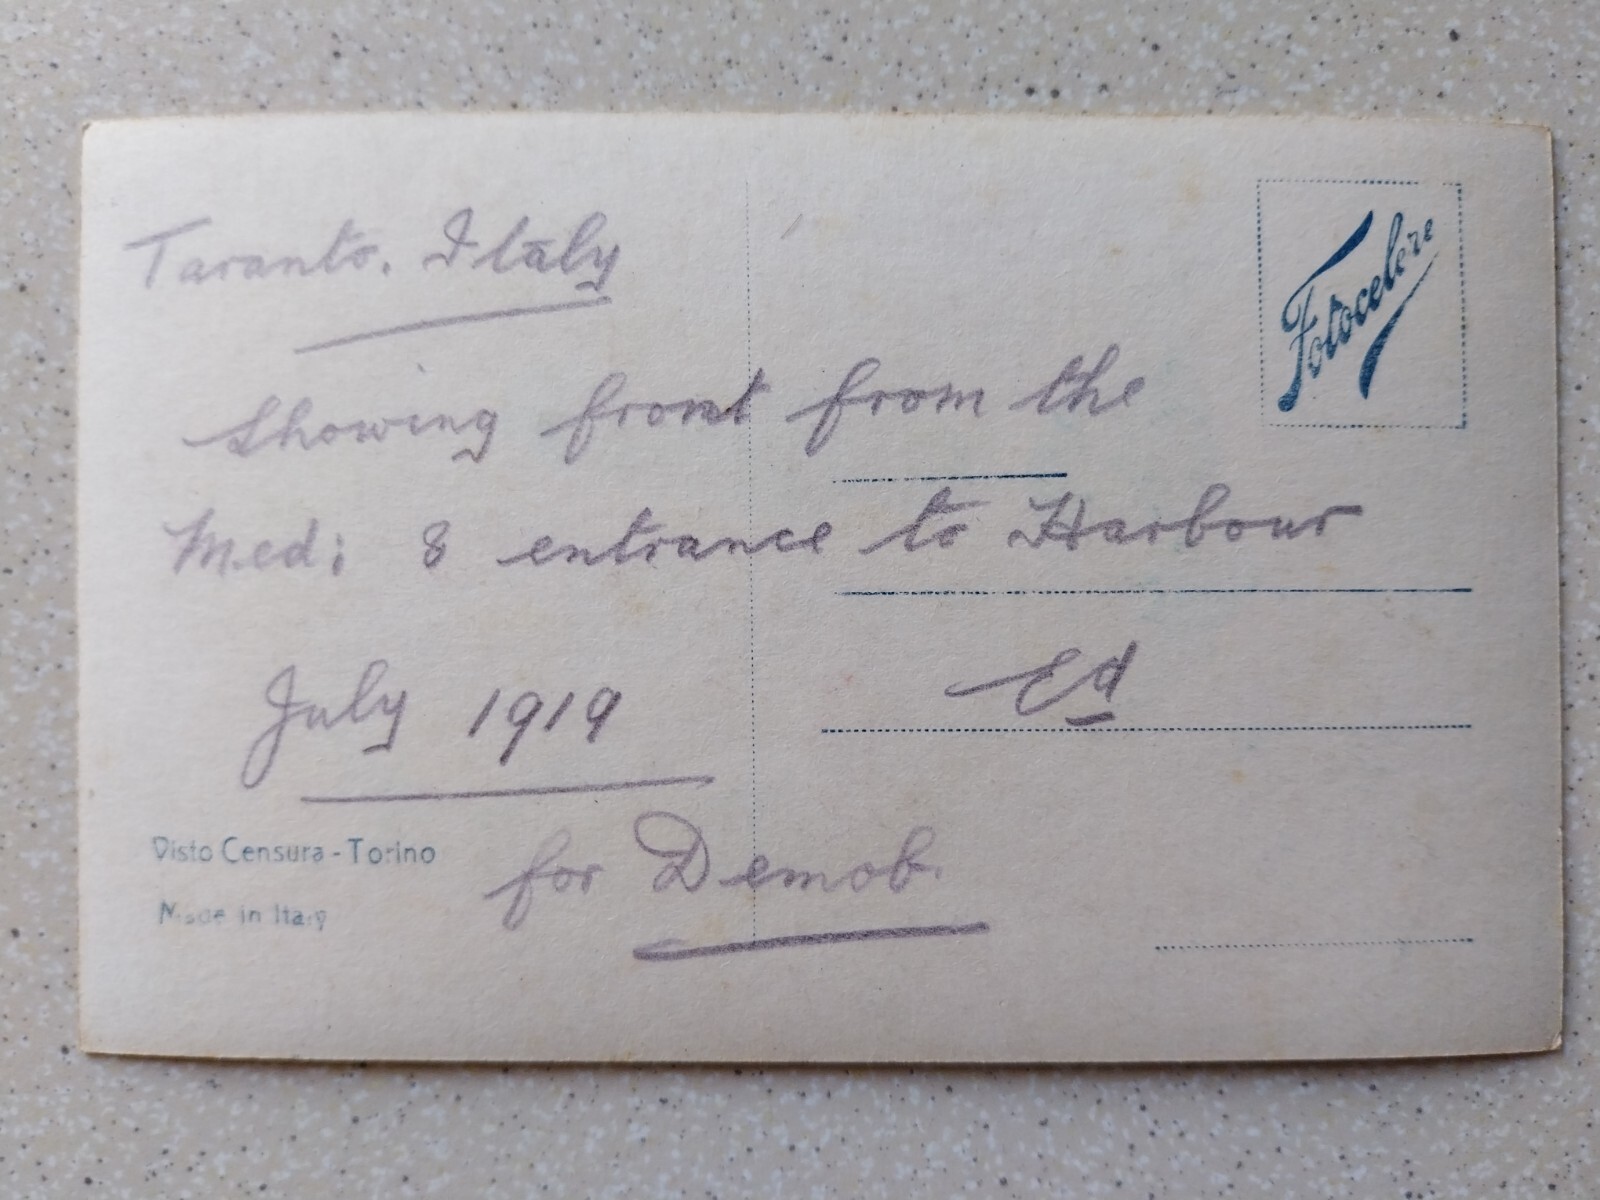 Taranto. Italy
Fotocelere
Showing front from the
Med: & entrance to Harbour
July 1919
Ed
for Demob.
Visto Censura - Torino
Made in Italy